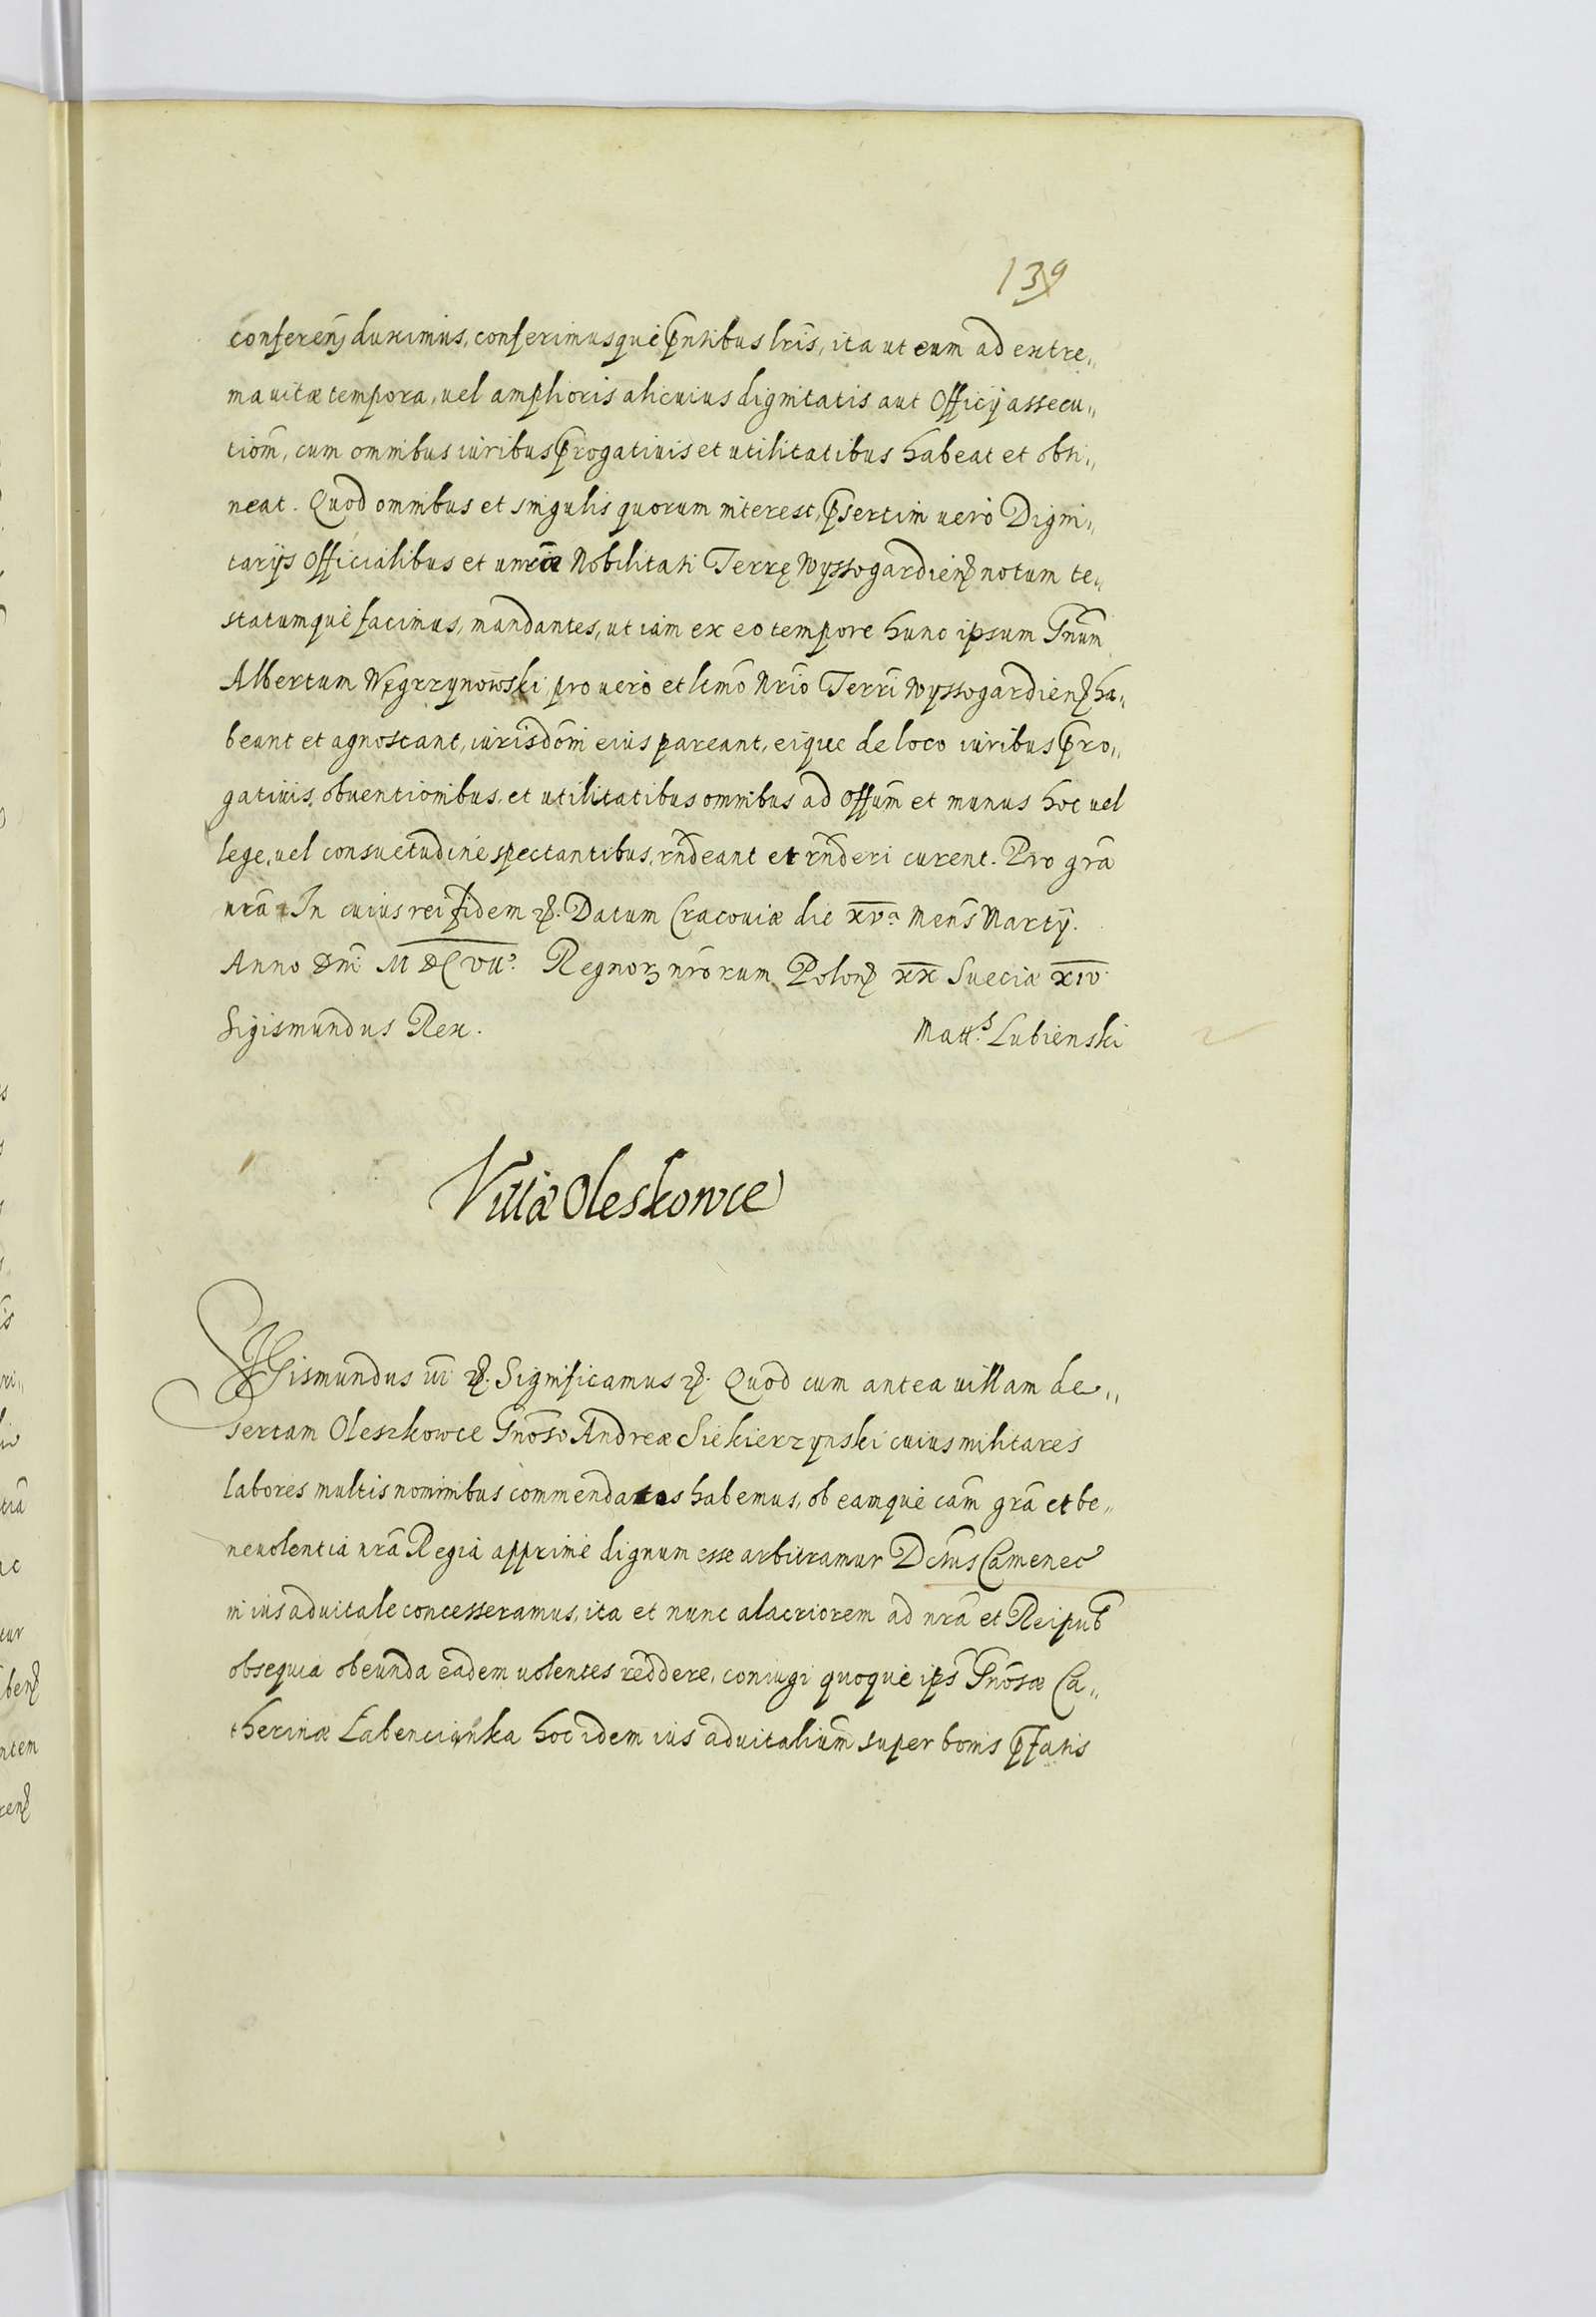 139
conferen̄ duximus, conferimusque p̄ntibus lr̄is, ita ut eum ad extre„
ma uitæ tempora, uel amplioris alicuius dignitatis aut Officij assecu„
tiōm, cum omnibus iuribus p̄rogatiuis et utilitatibus habeat et obti„
neat. Quod omnibus et singulis quorum interest, p̄sertim uerò Digni„
tarijs Officialibus et uniūæ Nobilitati Terrę Wyssogardien̄ notum te„
statumque facimus, mandantes, ut iam ex eo tempore hunc ipsum Gn̄um
Albertum Węgrzynowski pro uero et ltm̄o Nrīo Terr̄i Wyssogardien̄ ha„
beant et agnoscant, iurisdōni eius pareant, eique de loco iuribus p̄ro„
gatiuis, obuentionibus, et utilitatibus omnibus ad Offum̄ et munus hoc uel
lege, uel consuetudine spectantibus, rn̄deant et rn̄deri curent. Pro grā
nrā In cuius rei fidem ꝛc. Datum Cracouiæ die XVa Mens̄ Martij.
Anno Dn̄i MDCVIIo. Regnoꝝ nrōrum Polon̄ XX Sueciæ XIV.
Sigismundus Rex. Matts. Lubienski
Villæ Oleskowce
SIGismundus III ꝛc. Significamus ꝛc. Quod cum antea uillam de„
sertam Oleszkowce Gnōso Andreæ Siekierzynski cuius militares
labores multis nominibus commendatos habemus, ob eamque cām grā et be„
neuolentia nrā Regia apprime dignum esse arbitramur Dctūs Camenec
in ius aduitale concesseramus, ita et nunc alacriorem ad nrā et Reipub̄
obsequia obeunda eadem uolentes reddere, coniugi quoque ips̄ Gnōsæ Ca„
therinæ Łabencianka hoc idem ius aduitalium̄ super bonis p̄fatis